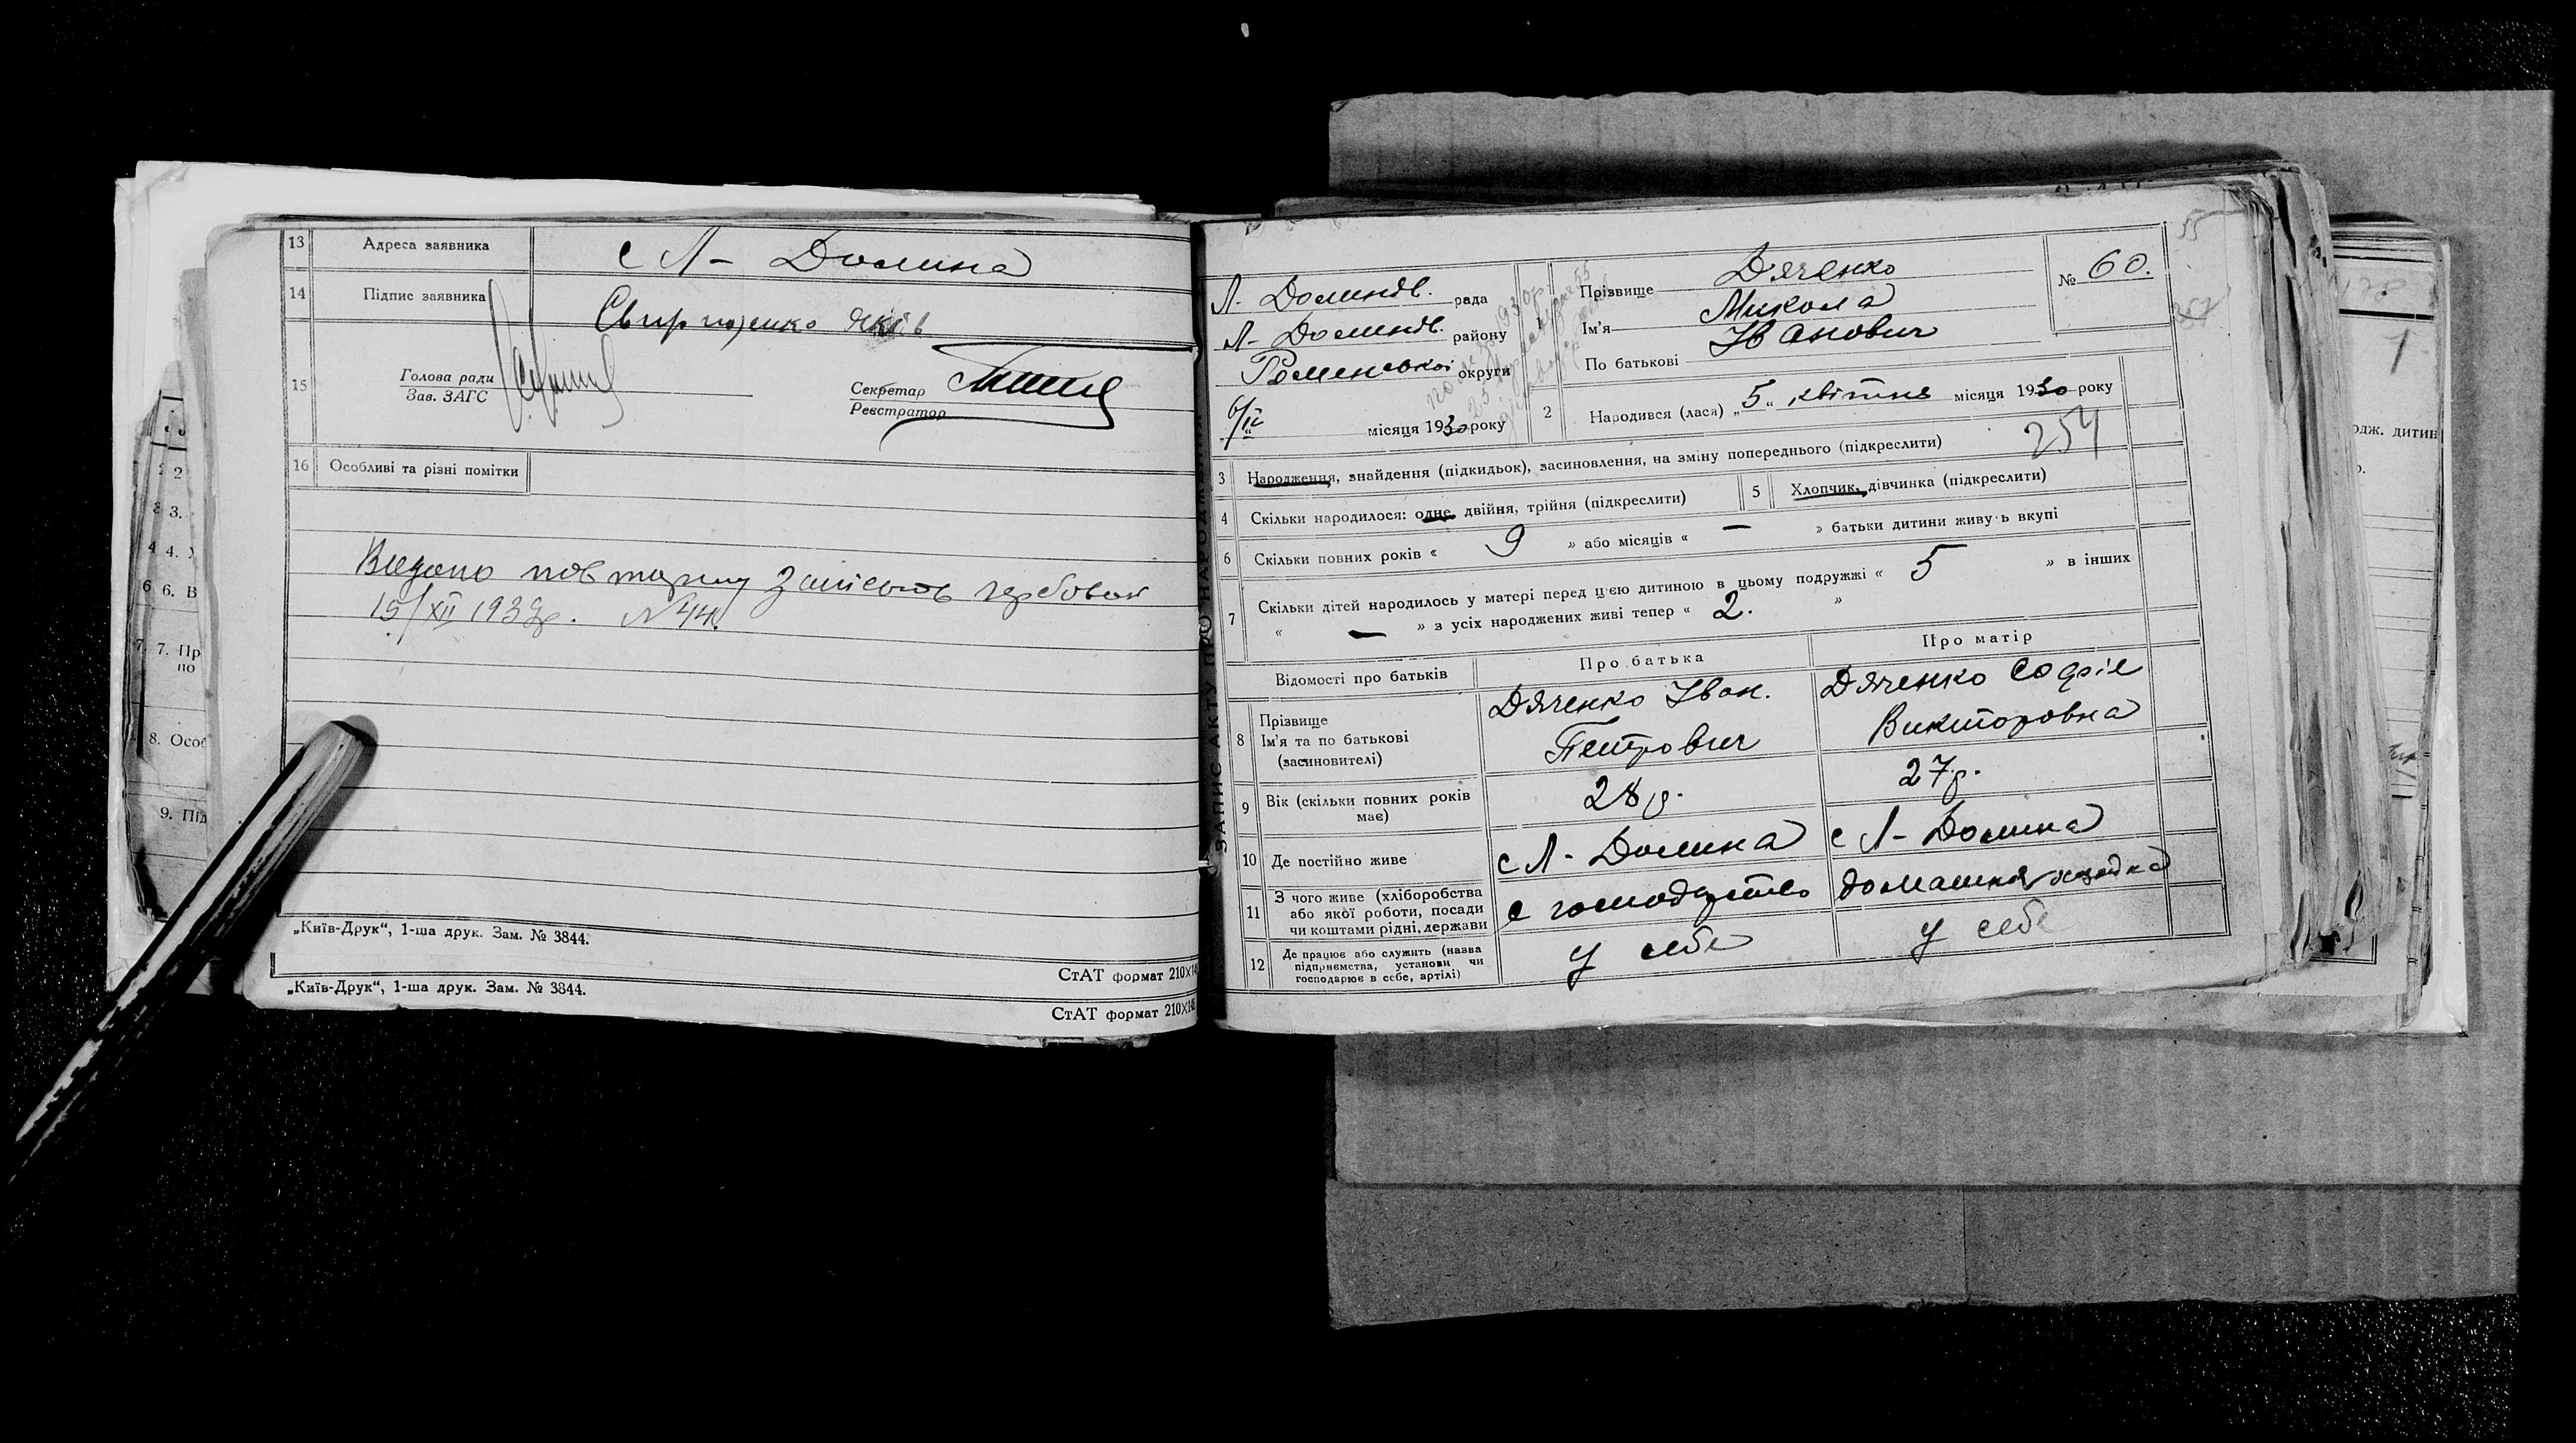 13 Адреса заявника с Л- Долина
14 Підпис заявника Яків
15 Голова ради
Зав. ЗАГС
Секретар
Реєстратор
16 Особливі та різні помітки
Видано повторну
15/XII 193 р. N 44.
„Київ-Друк“, 1-ша друк. Зам. № 3844.
СтАТ формат 210×14
„Київ-Друк“, 1-ша друк. Зам. № 3844.
СтАТ формат 210×148
ЗАПИС АКТУ ПРО НАРОДЖЕННЯ
55
Л- Долинсь. рада
Л- Долинсь. району
Роменської округи
6/IV місяця 1930 року
1 Прізвище Дяченко
Ім'я Микола
По батькові Іванович
№ 60.
2 Народився (лася) „5“ квітня місяця 1930 року
254
3 Народження, знайдення (підкидьок), засиновлення, на зміну попереднього (підкреслити)
4 Скільки народилося: одне, двійня, трійня (підкреслити)
5 Хлопчик, дівчинка (підкреслити)
6 Скільки повних років « 9 » або місяців « — » батьки дитини живуь вкупі
7 Скільки дітей народилось у матері перед цією дитиною в цьому подружжі « 5 » в інших
« — » з усіх народжених живі тепер « 2. »
Відомості про батьків Про батька Про матір
8 Прізвище
Ім'я та по батькові
(засиновителі)
Дяченко Іван.
Петрович
Дяченко Софія
Викторовна
9 Вік (скільки повних років
має)
28 р. 27 р.
10 Де постійно живе с Л- Долина с Л- Долина
11 З чого живе (хліборобства
або якої роботи, посади
чи коштами рідні, держави
с господарство домашня
12 Де працює або служить (назва
підприємства, установи чи
господарює в себе, артілі)
у себе у себе
2
3.
4.
6. В
7. Пр
по
8. Особ
9. Під
одж. дитин
1